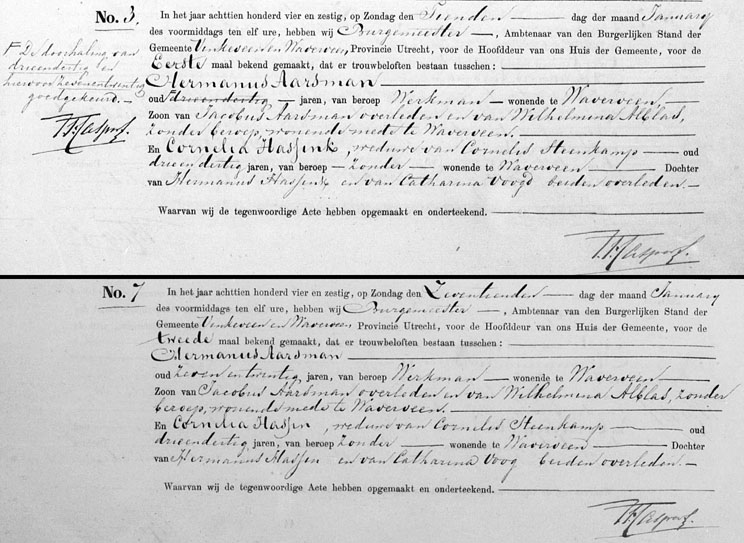 No. 3. In het jaar achttien honderd vier en zestig, op Zondag den Tienden dag der maand Januarij
des voormiddags ten elf ure, hebben wij Burgemeester, Ambtenaar van den Burgerlijken Stand der
Gemeente Vinkeveen en Waverveen, Provincie Utrecht, voor de Hoofddeur van ons Huis der Gemeente, voor de
Eerste maal bekend gemaakt, dat er trouwbeloften bestaan tusschen:
Hermanus Aarsman
oud drieendertig jaren, van beroep Werkman wonende te Waverveen
Zoon van Jacobus Aarsman overleden en van Wilhelmina Alblas,
zonder beroep, wonende mede te Waverveen.
En Cornelia Hassink, weduwe van Cornelis Steenkamp oud
drieendertig jaren, van beroep Zonder wonende te Waverveen Dochter
van Hermanus Hassink en van Catharina Voogd beiden overleden.
Waarvan wij de tegenwoordige Acte hebben opgemaakt en onderteekend.
De doorhaling van
drieendertig en
hiervoor zevenentwintig
goedgekeurd.
No. 7 In het jaar achttien honderd vier en zestig, op Zondag den Zeventienden dag der maand Januarij
des voormiddags ten elf ure, hebben wij Burgemeester, Ambtenaar van den Burgerlijken Stand der
Gemeente Vinkeveen en Waverveen, Provincie Utrecht, voor de Hoofddeur van ons Huis der Gemeente, voor de
tweede maal bekend gemaakt, dat er trouwbeloften bestaan tusschen:
Hermanus Aarsman
oud zeven en twintig jaren, van beroep Werkman wonende te Waverveen
Zoon van Jacobus Aarsman overleden en van Wilhelmina Alblas, zonder
beroep, wonende mede te Waverveen.
En Cornelia Hassin, weduwe van Cornelis Steenkamp oud
drieendertig jaren, van beroep Zonder wonende te Waverveen Dochter
van Hermanus Hassin en van Catharina Voog beiden overleden.
Waarvan wij de tegenwoordige Acte hebben opgemaakt en onderteekend.